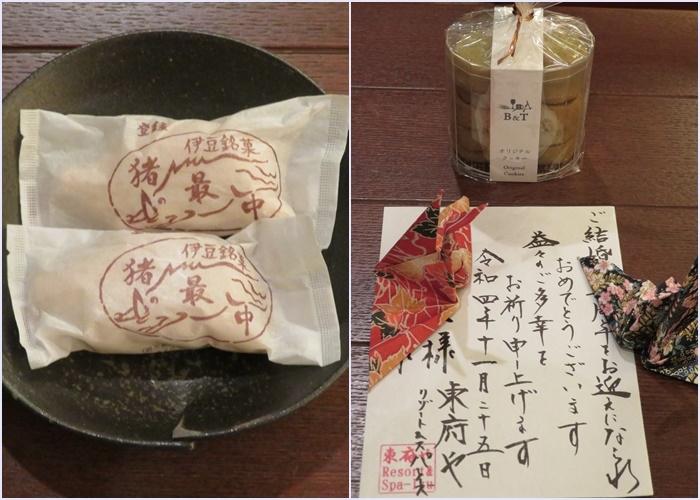 登録
伊豆銘菓
猪最中
伊豆銘菓
猪最中
B&T
オリジナル
クッキー
Original
Cookies
ご結婚 周年をお迎えになられ
おめでとうございます
益々のご多幸を
お祈り申し上げます
令和四年十一月二十五日
様
東府や
リゾート&スパ
東府や
Resort&
Spa-Izu